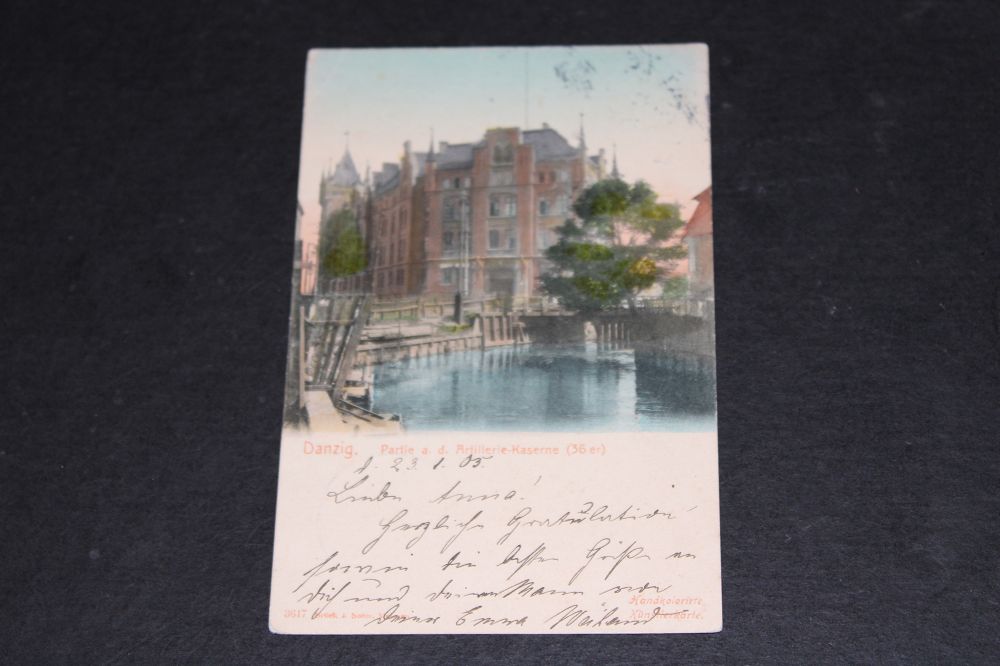 Danzig. Partie a. d. Artillerie-Kaserne (36 er)
d. 23. 1. 05.
Liebe Anna!
Herzliche Gratulation
sowie die besten Grüße an
Dich und deinen Mann
Handkolorirte
Künstlerkarte.
3617
deine Emma